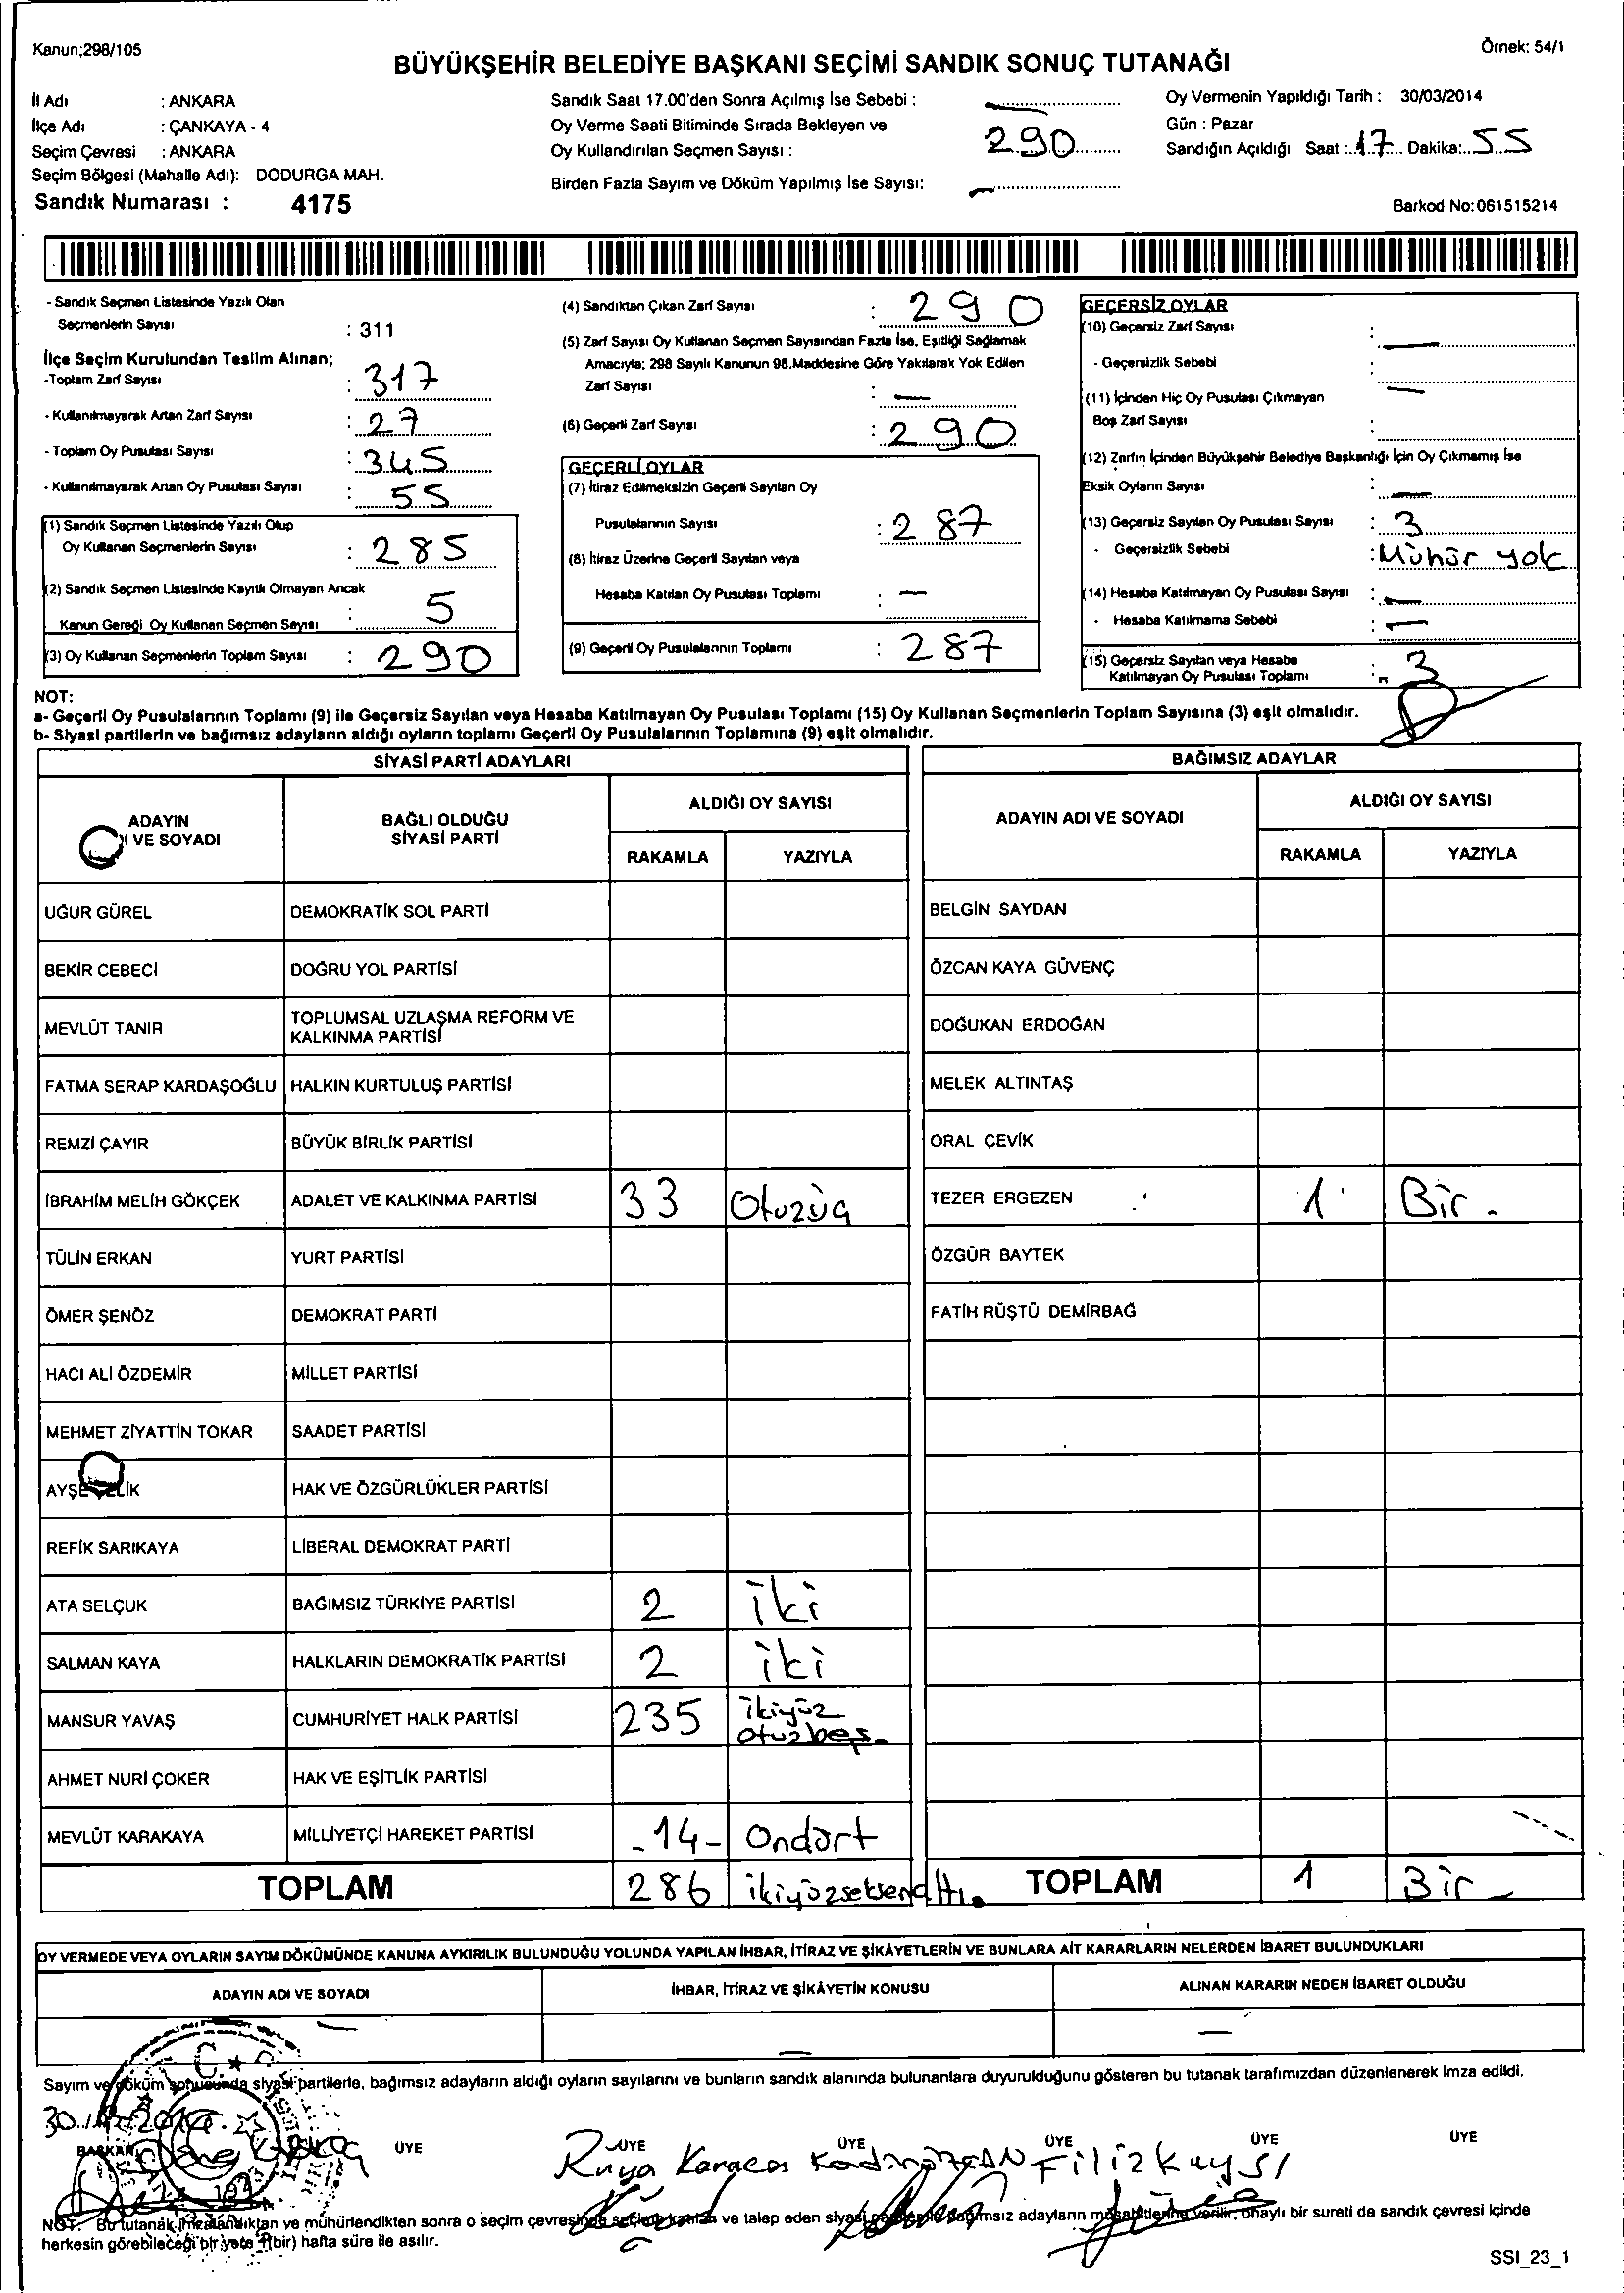 Kanun;298/105
Örnek: 54/1
BÜYÜKŞEHİR BELEDİYE BAŞKANI SEÇİMİ SANDIK SONUÇ TUTANAĞI
İl Adı : ANKARA
İlçe Adı : ÇANKAYA - 4
Seçim Çevresi : ANKARA
Seçim Bölgesi (Mahalle Adı): DODURGA MAH.
Sandık Numarası : 4175
Sandık Saat 17.00'den Sonra Açılmış İse Sebebi : —
Oy Verme Saati Bitiminde Sırada Bekleyen ve
Oy Kullandırılan Seçmen Sayısı : 290
Birden Fazla Sayım ve Döküm Yapılmış İse Sayısı: —
Oy Vermenin Yapıldığı Tarih : 30/03/2014
Gün : Pazar
Sandığın Açıldığı Saat : 17 Dakika: 55
Barkod No:061515214
- Sandık Seçmen Listesinde Yazılı Olan
Seçmenlerin Sayısı : 311
İlçe Seçim Kurulundan Teslim Alınan;
-Toplam Zarf Sayısı : 317
- Kullanılmayarak Artan Zarf Sayısı : 27
- Toplam Oy Pusulası Sayısı : 345
- Kullanılmayarak Artan Oy Pusulası Sayısı : 55
(1) Sandık Seçmen Listesinde Yazılı Olup
Oy Kullanan Seçmenlerin Sayısı : 285
(2) Sandık Seçmen Listesinde Kayıtlı Olmayan Ancak
Kanun Gereği Oy Kullanan Seçmen Sayısı : 5
(3) Oy Kullanan Seçmenlerin Toplam Sayısı : 290
(4) Sandıktan Çıkan Zarf Sayısı : 290
(5) Zarf Sayısı Oy Kullanan Seçmen Sayısından Fazla İse, Eşitliği Sağlamak
Amacıyla; 298 Sayılı Kanunun 98.Maddesine Göre Yakılarak Yok Edilen
Zarf Sayısı : —
(6) Geçerli Zarf Sayısı : 290
GEÇERLİ OYLAR
(7) İtiraz Edilmeksizin Geçerli Sayılan Oy
Pusulalarının Sayısı : 287
(8) İtiraz Üzerine Geçerli Sayılan veya
Hesaba Katılan Oy Pusulası Toplamı : —
(9) Geçerli Oy Pusulalarının Toplamı : 287
GEÇERSİZ OYLAR
(10) Geçersiz Zarf Sayısı : —
- Geçersizlik Sebebi :
(11) İçinden Hiç Oy Pusulası Çıkmayan —
Boş Zarf Sayısı :
(12) Zarfın İçinden Büyükşehir Belediye Başkanlığı İçin Oy Çıkmamış İse
Eksik Oyların Sayısı : —
(13) Geçersiz Sayılan Oy Pusulası Sayısı : 3
- Geçersizlik Sebebi : Mühür yok
(14) Hesaba Katılmayan Oy Pusulası Sayısı : —
- Hesaba Katılmama Sebebi : —
(15) Geçersiz Sayılan veya Hesaba
Katılmayan Oy Pusulası Toplamı : 3
NOT:
a- Geçerli Oy Pusulalarının Toplamı (9) ile Geçersiz Sayılan veya Hesaba Katılmayan Oy Pusulası Toplamı (15) Oy Kullanan Seçmenlerin Toplam Sayısına (3) eşit olmalıdır.
b- Siyasi partilerin ve bağımsız adayların aldığı oyların toplamı Geçerli Oy Pusulalarının Toplamına (9) eşit olmalıdır.
SİYASİ PARTİ ADAYLARI
ADAYIN
I VE SOYADI
BAĞLI OLDUĞU
SİYASİ PARTİ
ALDIĞI OY SAYISI
RAKAMLA YAZIYLA
UĞUR GÜREL DEMOKRATİK SOL PARTİ
BEKİR CEBECİ DOĞRU YOL PARTİSİ
MEVLÜT TANIR TOPLUMSAL UZLAŞMA REFORM VE
KALKINMA PARTİSİ
FATMA SERAP KARDAŞOĞLU HALKIN KURTULUŞ PARTİSİ
REMZİ ÇAYIR BÜYÜK BİRLİK PARTİSİ
İBRAHİM MELİH GÖKÇEK ADALET VE KALKINMA PARTİSİ 33 Otuzüç
TÜLİN ERKAN YURT PARTİSİ
ÖMER ŞENÖZ DEMOKRAT PARTİ
HACI ALİ ÖZDEMİR MİLLET PARTİSİ
MEHMET ZİYATTİN TOKAR SAADET PARTİSİ
AYŞE ÇELİK HAK VE ÖZGÜRLÜKLER PARTİSİ
REFİK SARIKAYA LİBERAL DEMOKRAT PARTİ
ATA SELÇUK BAĞIMSIZ TÜRKİYE PARTİSİ 2 iki
SALMAN KAYA HALKLARIN DEMOKRATİK PARTİSİ 2 iki
MANSUR YAVAŞ CUMHURİYET HALK PARTİSİ 235 ikiyüz
otuzbeş
AHMET NURİ ÇOKER HAK VE EŞİTLİK PARTİSİ
MEVLÜT KARAKAYA MİLLİYETÇİ HAREKET PARTİSİ -14- Ondört
TOPLAM 286 ikiyüzseksenaltı.
BAĞIMSIZ ADAYLAR
ADAYIN ADI VE SOYADI
ALDIĞI OY SAYISI
RAKAMLA YAZIYLA
BELGİN SAYDAN
ÖZCAN KAYA GÜVENÇ
DOĞUKAN ERDOĞAN
MELEK ALTINTAŞ
ORAL ÇEVİK
TEZER ERGEZEN 1 Bir.
ÖZGÜR BAYTEK
FATİH RÜŞTÜ DEMİRBAĞ
TOPLAM 1 Bir
OY VERMEDE VEYA OYLARIN SAYIM DÖKÜMÜNDE KANUNA AYKIRILIK BULUNDUĞU YOLUNDA YAPILAN İHBAR, İTİRAZ VE ŞİKÂYETLERİN VE BUNLARA AİT KARARLARIN NELERDEN İBARET BULUNDUKLARI
ADAYIN ADI VE SOYADI İHBAR, İTİRAZ VE ŞİKÂYETİN KONUSU ALINAN KARARIN NEDEN İBARET OLDUĞU
— — —
Sayım ve döküm sonucunda siyasi partilerle, bağımsız adayların aldığı oyların sayılarını ve bunların sandık alanında bulunanlara duyurulduğunu gösteren bu tutanak tarafımızdan düzenlenerek imza edildi.
BAŞKAN ÜYE ÜYE ÜYE ÜYE ÜYE ÜYE
Rüya Karacas Filiz Kaysı
NOT: Bu tutanak imzalandıktan ve mühürlendikten sonra o seçim çevresinde seçime katılan ve talep eden siyasi partilerle bağımsız adayların müşahitlerine verilir, onaylı bir sureti de sandık çevresi içinde
herkesin görebileceği bir yere 1(bir) hafta süre ile asılır.
SSI_23_1